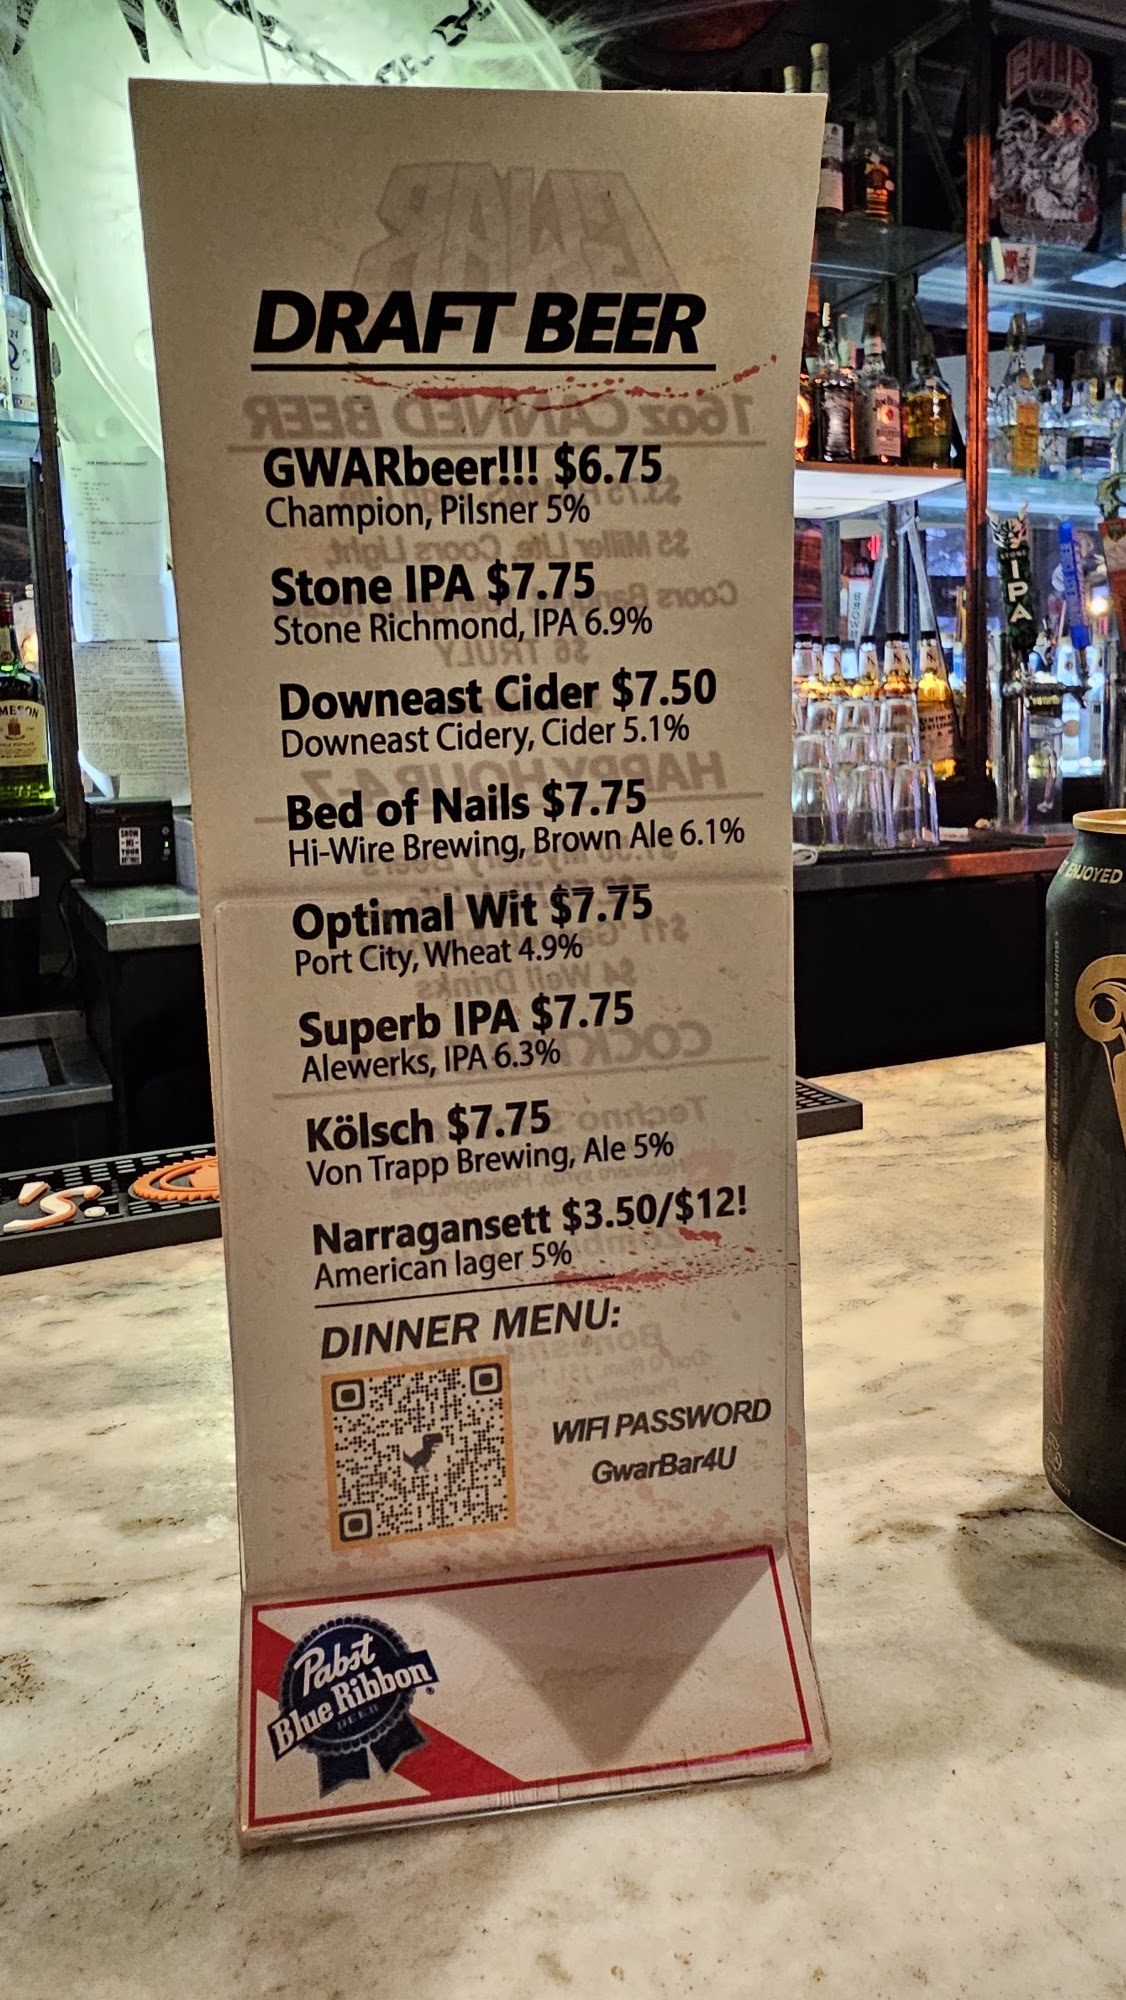 DRAFT BEER
GWARbeer!!! $6.75
Champion, Pilsner 5%
Stone IPA $7.75
Stone Richmond, IPA 6.9%
Downeast Cider $7.50
Downeast Cidery, Cider 5.1%
Bed of Nails $7.75
Hi-Wire Brewing, Brown Ale 6.1%
Optimal Wit $7.75
Port City, Wheat 4.9%
Superb IPA $7.75
Alewerks, IPA 6.3%
Kölsch $7.75
Von Trapp Brewing, Ale 5%
Narragansett $3.50/$12!
American lager 5%
DINNER MENU:
WIFI PASSWORD
GwarBar4U
Pabst
Blue Ribbon
BEER
GWAR
16oz CANNED BEER
$5 Miller Lite, Coors Light,
$6 TRULY
HAPPY HOUR 4-7
$4 Well Drinks
GWAR
IPA
ENJOYED
'S.